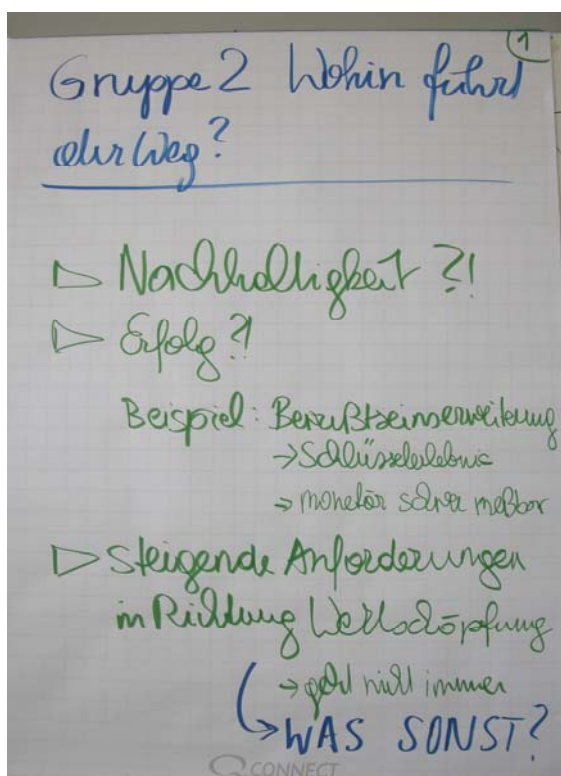 1
Gruppe 2 Wohin führt
der Weg?
▷ Nachhaltigkeit ?!
▷ Erfolg ?!
Beispiel: Bewußtseinserweiterung
→ Schlüsselerlebnis
→ monetär schwer meßbar
▷ steigende Anforderungen
in Richtung Wertschöpfung
→ geht nicht immer
→ WAS SONST?
Q CONNECT